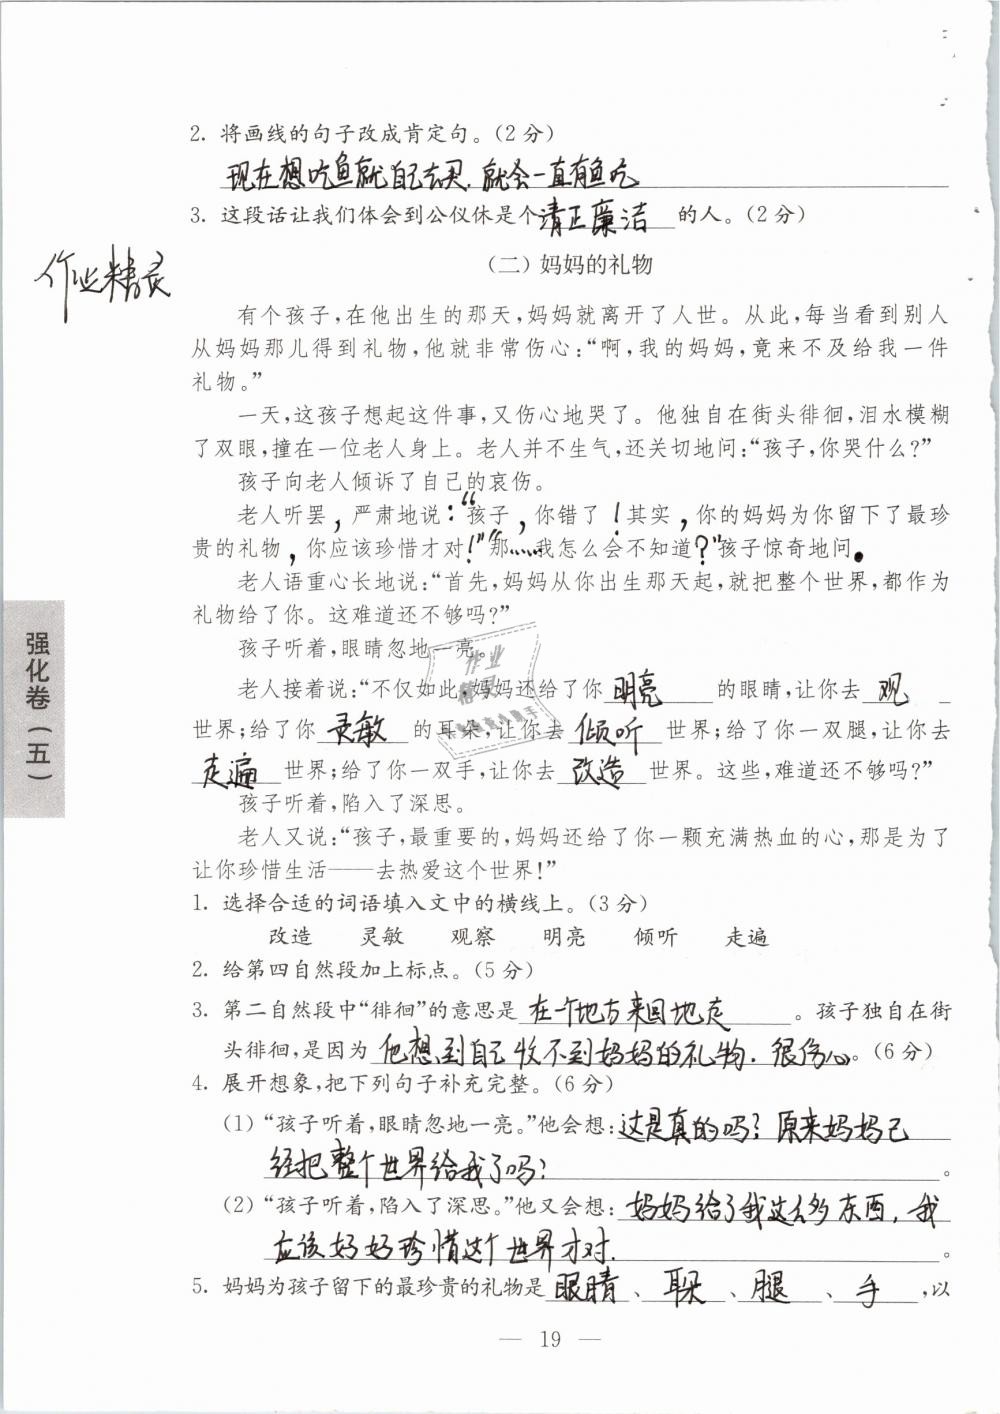 2. 将画线的句子改成肯定句。(2分)
现在想吃鱼就自己去买.就会一直有鱼吃
3. 这段话让我们体会到公仪休是个清正廉洁的人。(2分)
作业精灵
(二)妈妈的礼物
有个孩子,在他出生的那天,妈妈就离开了人世。从此,每当看到别人
从妈妈那儿得到礼物,他就非常伤心:“啊,我的妈妈,竟来不及给我一件
礼物。”
一天,这孩子想起这件事,又伤心地哭了。他独自在街头徘徊,泪水模糊
了双眼,撞在一位老人身上。老人并不生气,还关切地问:“孩子,你哭什么?”
孩子向老人倾诉了自己的哀伤。
老人听罢,严肃地说:“孩子,你错了!其实,你的妈妈为你留下了最珍
贵的礼物,你应该珍惜才对!”“那……我怎么会不知道?”孩子惊奇地问。
老人语重心长地说:“首先,妈妈从你出生那天起,就把整个世界,都作为
礼物给了你。这难道还不够吗?”
孩子听着,眼睛忽地一亮。
作业
精灵
老人接着说:“不仅如此,妈妈还给了你明亮的眼睛,让你去观
世界;给了你灵敏的耳朵,让你去倾听世界;给了你一双腿,让你去
走遍世界;给了你一双手,让你去改造世界。这些,难道还不够吗?”
孩子听着,陷入了深思。
老人又说:“孩子,最重要的,妈妈还给了你一颗充满热血的心,那是为了
让你珍惜生活——去热爱这个世界!”
1. 选择合适的词语填入文中的横线上。(3分)
改造 灵敏 观察 明亮 倾听 走遍
2. 给第四自然段加上标点。(5分)
3. 第二自然段中“徘徊”的意思是在一个地方来回地走。孩子独自在街
头徘徊,是因为他想到自己收不到妈妈的礼物.很伤心。(6分)
4. 展开想象,把下列句子补充完整。(6分)
(1)“孩子听着,眼睛忽地一亮。”他会想:这是真的吗?原来妈妈已
经把整个世界给我了吗?。
(2)“孩子听着,陷入了深思。”他又会想:妈妈给了我这么多东西,我
应该好好珍惜这个世界才对.。
5. 妈妈为孩子留下的最珍贵的礼物是眼睛、耳朵、腿、手,以
强化卷(五)
— 19 —